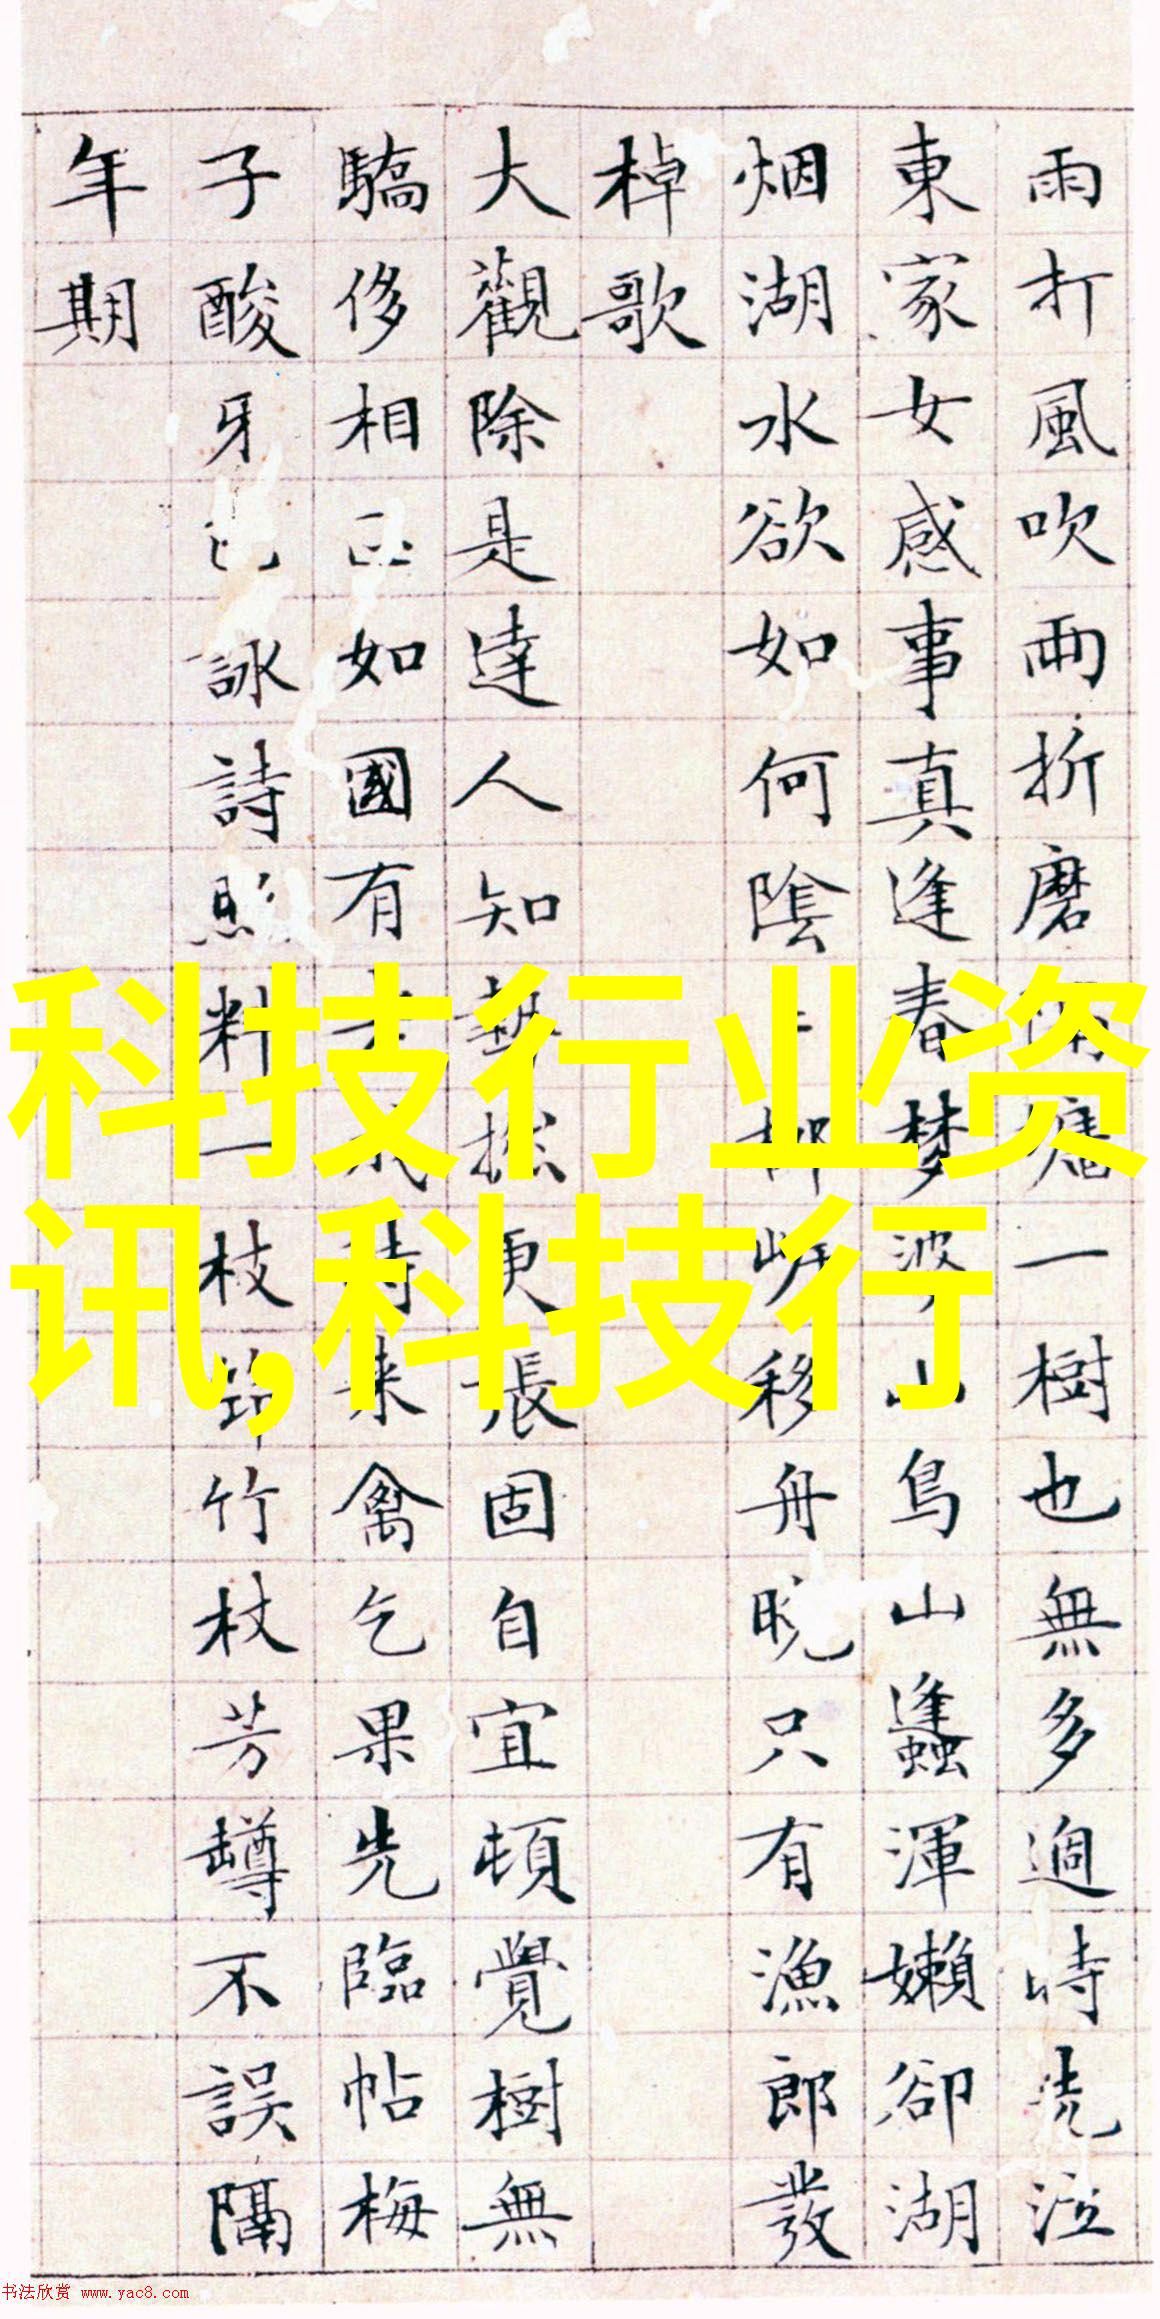 雨打風吹雨折磨 一樹也無多過時
東家女感事真逢春梦婆山鳥山蠭渾嬾卻湖
烟湖水欲如何陰 柳岍移舟晓只有漁郎發
棹歌
大觀除是達人知 更張固自宜頓覺樹無
驕侈相 如國有 時来禽乞果先臨帖梅
子酸牙 詠詩 料一枝筇竹杖芳罇不誤隔
年期
科技行业资
讯,科技行
书法欣赏 www.yac8.com